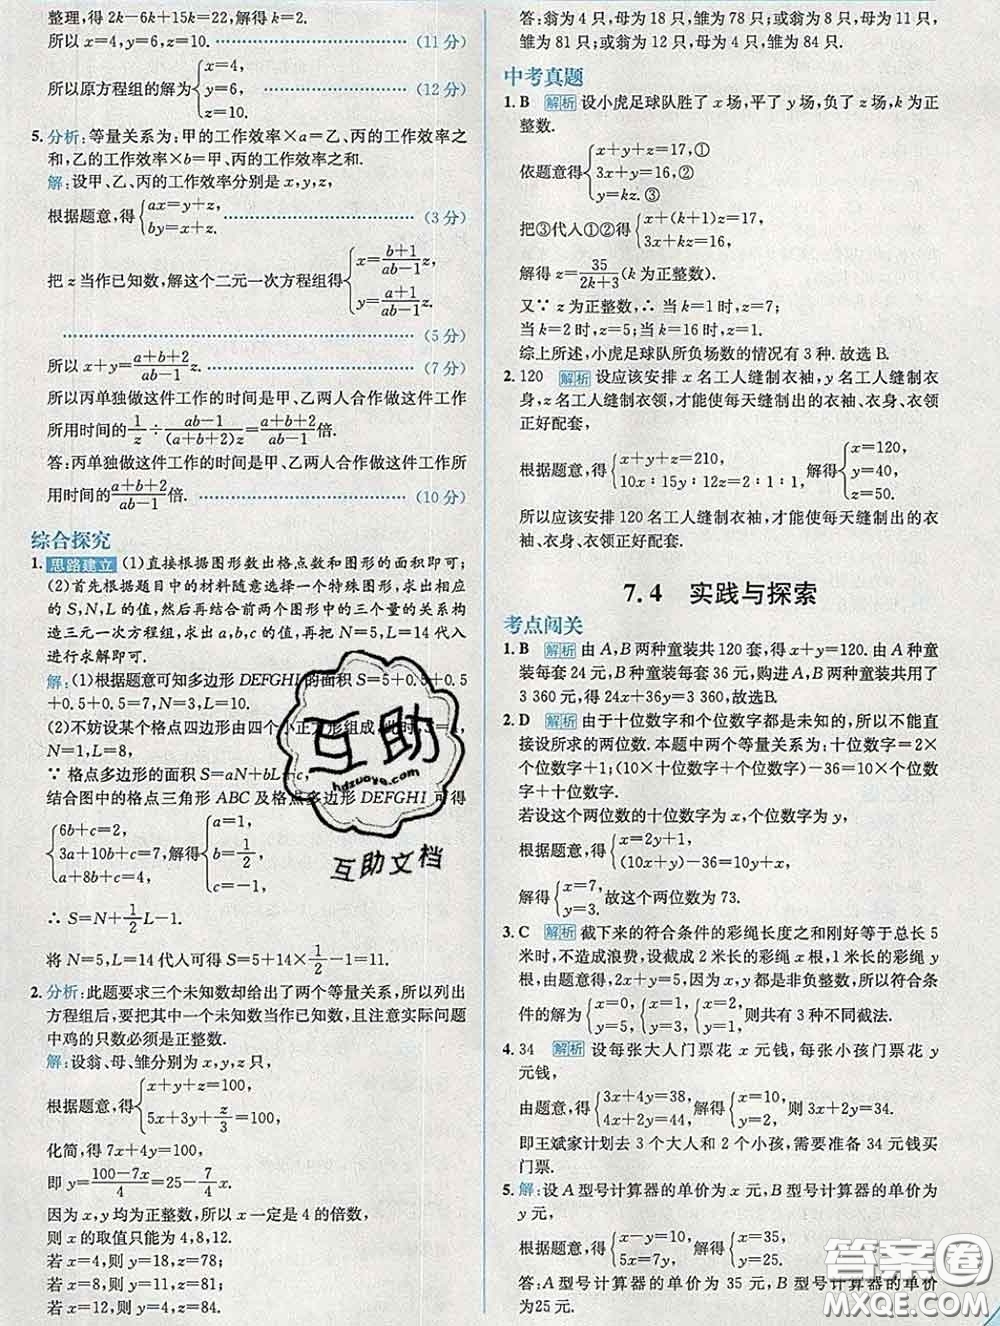 整理,得 2k−6k+15k=22,解得 k=2.
所以 x=4,y=6,z=10. (11 分)
所以原方程组的解为{x=4, y=6, z=10. (12 分)
5. 分析:等量关系为:甲的工作效率×a=乙、丙的工作效率之
和,乙的工作效率×b=甲、丙的工作效率之和.
解:设甲、乙、丙的工作效率分别是 x,y,z,
根据题意,得{ax=y+z, by=x+z. (3 分)
把 z 当作已知数,解这个二元一次方程组得{x=(b+1)/(ab−1)z, y=(a+1)/(ab−1)z.
(5 分)
所以 x+y=(a+b+2)/(ab−1)z. (7 分)
所以丙单独做这件工作的时间是甲、乙两人合作做这件工作
所用时间的1/z÷(ab−1)/((a+b+2)z)=(a+b+2)/(ab−1)倍.
答:丙单独做这件工作的时间是甲、乙两人合作做这件工作所
用时间的(a+b+2)/(ab−1)倍. (10 分)
综合探究
1. 思路建立 (1)直接根据图形数出格点数和图形的面积即可;
(2)首先根据题目中的材料随意选择一个特殊图形,求出相应
的 S,N,L 的值,然后再结合前两个图形中的三个量的关系构
造三元一次方程组,求出 a,b,c 的值,再把 N=5,L=14 代入
进行求解即可.
解:(1)根据题意可知多边形 DEFGHI 的面积 S=5+0.5+0.5
+0.5+0.5=7,N=3,L=10.
(2)不妨设某个格点四边形由四个小正方形组成,此时,S=4,
N=1,L=8,
∵ 格点多边形的面积 S=aN+bL+c,
结合图中的格点三角形 ABC 及格点多边形 DEFGHI 可得
{6b+c=2, 3a+10b+c=7, a+8b+c=4, 解得{a=1, b=1/2, c=−1.
∴ S=N+1/2L−1.
将 N=5,L=14 代人可得 S=5+14×1/2−1=11.
2. 分析:此题要求三个未知数却给出了两个等量关系,所以列出
方程组后,要把其中一个未知数当作已知数,且注意实际问题
中鸡的只数必须是正整数.
解:设翁、母、雏分别为 x,y,z 只,
根据题意,得{x+y+z=100, 5x+3y+z/3=100,
化简,得 7x+4y=100,
即 y=(100−7x)/4=25−7/4x.
因为 x,y 均为正整数,所以 x 一定是 4 的倍数,
则 x 的取值只能为 4,8,12.
若 x=4,则 y=18,z=78;
若 x=8,则 y=11,z=81;
若 x=12,则 y=4,z=84.
答:翁为 4 只,母为 18 只,雏为 78 只;或翁为 8 只,母为 11 只,
雏为 81 只;或翁为 12 只,母为 4 只,雏为 84 只.
中考真题
1. B 解析 设小虎足球队胜了 x 场,平了 y 场,负了 z 场,k 为正
整数.
依题意得{x+y+z=17,① 3x+y=16,② y=kz.③
把③代人①②得{x+(k+1)z=17, 3x+kz=16,
解得 z=35/(2k+3)(k 为正整数).
又∵ z 为正整数,∴ 当 k=1 时,z=7;
当 k=2 时,z=5;当 k=16 时,z=1.
综上所述,小虎足球队所负场数的情况有 3 种.故选 B.
2. 120 解析 设应该安排 x 名工人缝制衣袖,y 名工人缝制衣
身,z 名工人缝制衣领,才能使每天缝制出的衣袖、衣身、衣领
正好配套,
根据题意,得{x+y+z=210, 10x∶15y∶12z=2∶1∶1, 解得{x=120, y=40, z=50.
所以应该安排 120 名工人缝制衣袖,才能使每天缝制出的衣
袖、衣身、衣领正好配套.
7.4 实践与探索
考点闯关
1. B 解析 由 A,B 两种童装共 120 套,得 x+y=120.由 A 种童
装每套 24 元,B 种童装每套 36 元,购进 A,B 两种童装共用了
3 360 元,得 24x+36y=3 360,故选 B.
2. D 解析 由于十位数字和个位数字都是未知的,所以不能直
接设所求的两位数.本题中两个等量关系为:十位数字=2×
个位数字+1;(10×十位数字+个位数字)−36=10×个位数
字+十位数字.
若设这个两位数的十位数字为 x,个位数字为 y,
根据题意,得{x=2y+1, (10x+y)−36=10y+x.
解得{x=7, y=3. 故这个两位数为 73.
3. C 解析 截下来的符合条件的彩绳长度之和刚好等于总长 5
米时,不造成浪费,设截成 2 米长的彩绳 x 根,1 米长的彩绳 y
根,由题意得,2x+y=5,因为 x,y 都是非负整数,所以符合条
件的解为{x=0, y=5, {x=1, y=3, {x=2, y=1, 则共有 3 种不同截法.
4. 34 解析 设每张大人门票花 x 元钱,每张小孩门票花 y
元钱,
由题意,得{3x+4y=38, 4x+2y=44, 解得{x=10, y=2, 则 3x+2y=34.
即王斌家计划去 3 个大人和 2 个小孩,需要准备 34 元钱买
门票.
5. 解:设 A 型号计算器的单价为 x 元,B 型号计算器的单价为
y 元,
根据题意,得{x−y=10, 5x=7y, 解得{x=35, y=25.
答:A 型号计算器的单价为 35 元,B 型号计算器的单价
为25 元.
互助
hdzuoye.com
互助文档
答案圈
MXQE.COM